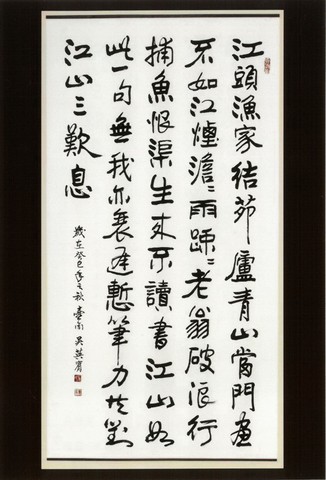 江頭漁家結茆廬青山當門畫
不如江煙澹〻雨疎〻老翁破浪行
捕魚恨渠生來不讀書江山如
此一句無我亦衰遲慙筆力共對
江山三歎息
歲在癸巳年之秋臺南吳英